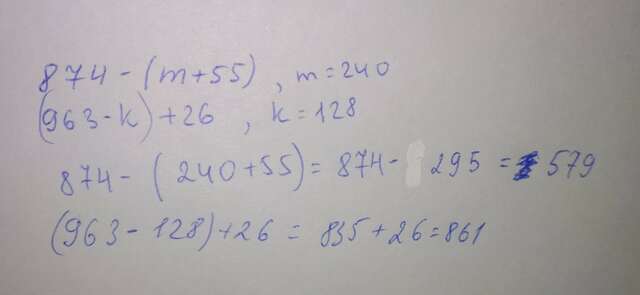 874 - (m+55) , m=240
(963-k)+26 , k=128
874- (240+55)= 874- 295 = 579
(963-128)+26 = 835+26=861